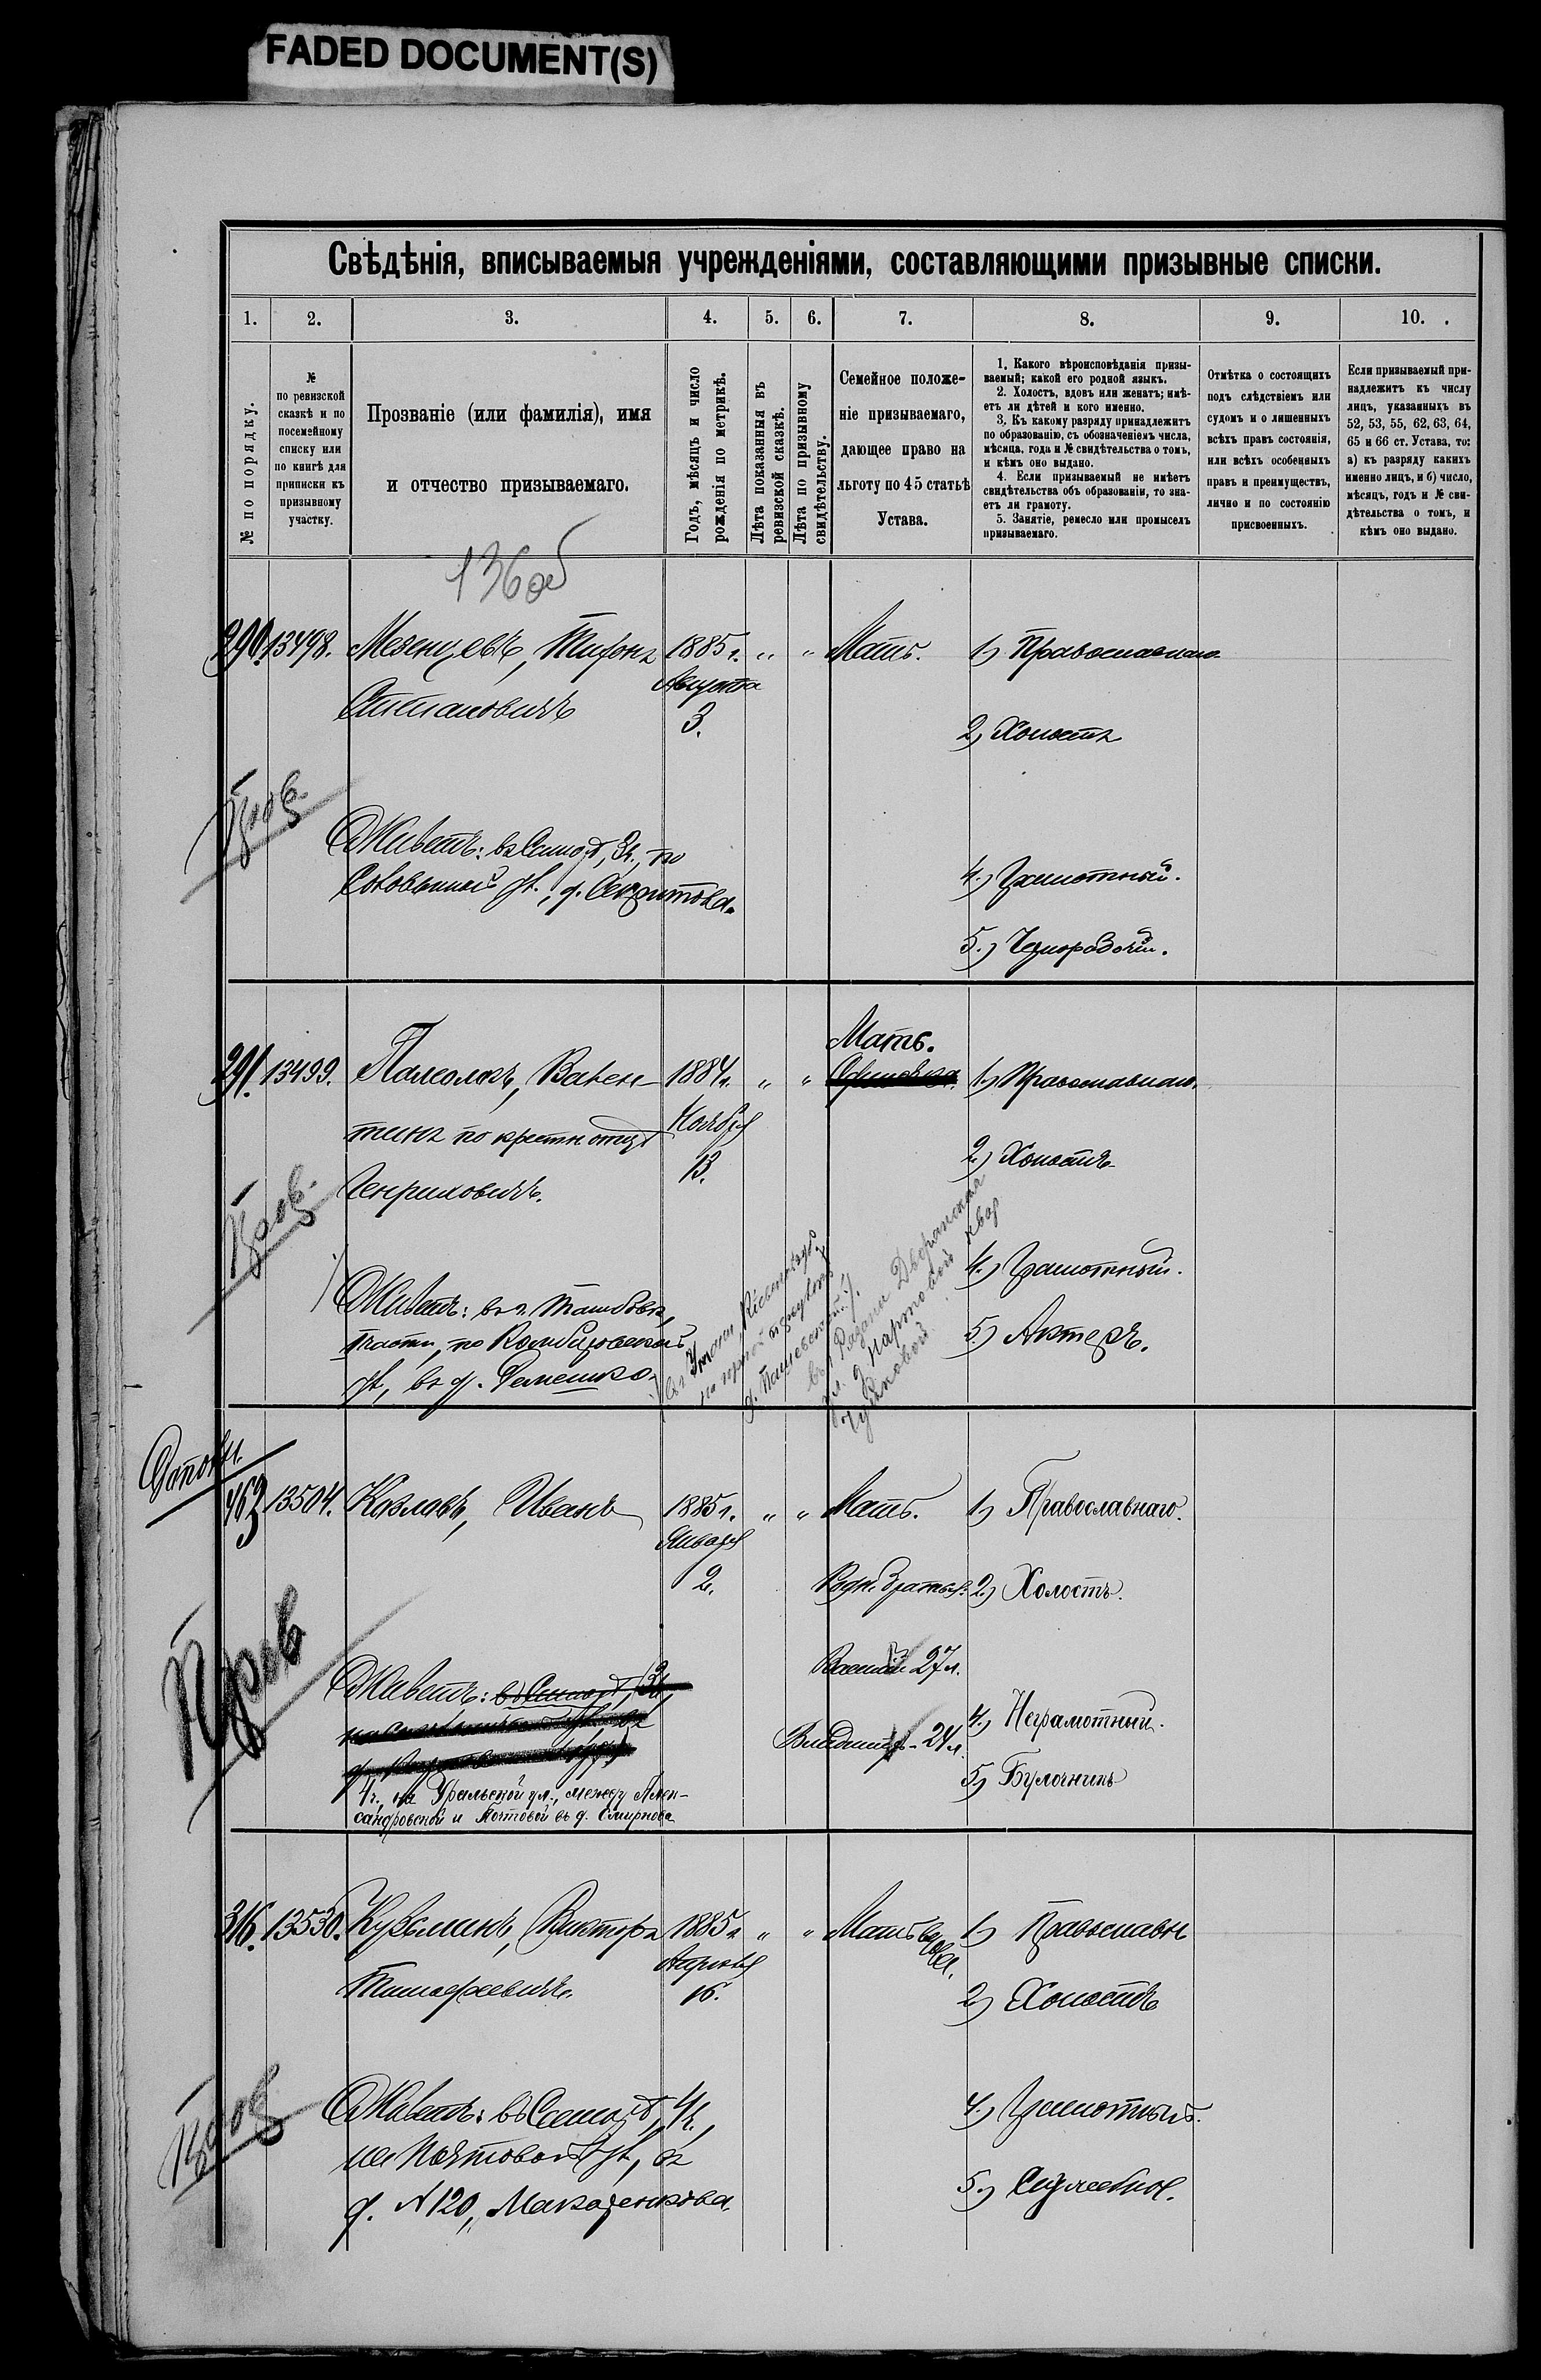 FADED DOCUMENT(S)
Свѣдѣнія, вписываемыя учрежденіями, составляющими призывные списки.
1. 2. 3. 4. 5. 6. 7. 8. 9. 10.
№ по порядку.
№
по ревизской
сказкѣ и по
посемейному
списку или
по книгѣ для
приписки къ
призывному
участку.
Прозваніе (или фамилія), имя
и отчество призываемаго.
Годъ, мѣсяцъ и число
рожденія по метрикѣ.
Лѣта показанныя въ
ревизской сказкѣ.
Лѣта по призывному
свидѣтельству.
Семейное положе-
ніе призываемаго,
дающее право на
льготу по 45 статьѣ
Устава.
1. Какого вѣроисповѣданія призы-
ваемый; какой его родной языкъ.
2. Холостъ, вдовъ или женатъ; имѣ-
етъ ли дѣтей и кого именно.
3. Къ какому разряду принадлежитъ
по образованію, съ обозначеніемъ числа,
мѣсяца, года и № свидѣтельства о томъ,
и кѣмъ оно выдано.
4. Если призываемый не имѣетъ
свидѣтельства объ образованіи, то зна-
етъ ли грамоту.
5. Занятіе, ремесло или промыселъ
призываемаго.
Отмѣтка о состоящихъ
подъ слѣдствіемъ или
судомъ и о лишенныхъ
всѣхъ правъ состоянія,
или всѣхъ особенныхъ
правъ и преимуществъ,
лично и по состоянію
присвоенныхъ.
Если призываемый при-
надлежитъ къ числу
лицъ, указанныхъ въ
52, 53, 55, 62, 63, 64,
65 и 66 ст. Устава, то:
а) къ разряду какихъ
именно лицъ, и б) число,
мѣсяцъ, годъ и № сви-
дѣтельства о томъ, и
кѣмъ оно выдано.
136 об
290. 13498. Мезенцевъ, Тифонъ 1885 г. " " Мать. 1) Православнаго
Августа
Степановичъ 3.
2) Холостъ
Живетъ: въ
4.) Грамотный.
5.) Чернорабочій.
Мать.
291. 13499. Палеологъ, Вален- 1884 г. " " 1) Православнаго.
тинъ по крестн отцу Ноября
13. 2.) Холостъ
Генриховичъ.
4.) Грамотный.
Живетъ: въ г. Тамбовѣ,
части, по
5.) Актеръ.
въ г. Рязани Дворянская
463 13504. Козловъ, Иванъ 1885 г. " " Мать. 1) Православнаго.
Января
2. Родн. братья: 2.) Холостъ.
Василій 27 л.
Живетъ:
Владиміръ - 24 л. 4.) Неграмотный.
5.) Булочникъ
4 ч., на Уральской ул., между Алек-
сандровской и Почтовой въ д. Смирнова
316. 13530. Кузьминъ, Викторъ 1885 г. " " Мать вдова. 1) Православн
Апрѣля
Тимофеевичъ. 16. 2) Холостъ
Живетъ: въ 4 ч., 4.) Грамотный.
на Почтовой ул., въ
д. № 120, Макаренкова. 5.)